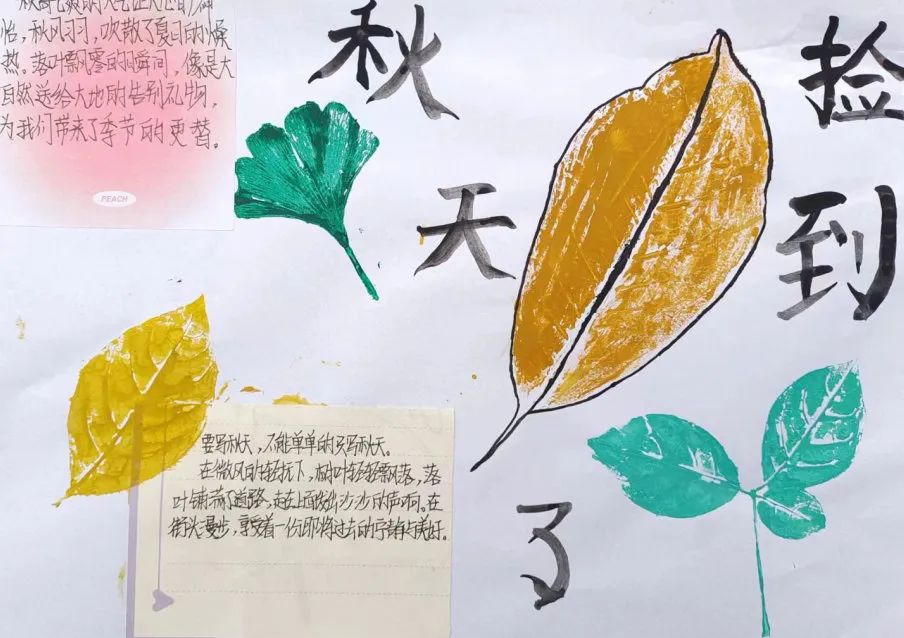 捡到了秋天
怡，秋风习习，吹散了夏日的燥
热。落叶飘零的瞬间，像是大
自然送给大地的告别礼物，
为我们带来了季节的更替。
PEACH
要写秋天，不能单单的只写秋天。
在微风的轻抚下，树叶轻轻飘落，落
叶铺满了道路，走在上面发出沙沙的声响。在
街头漫步，享受着一份即将过去的宁静与美好。